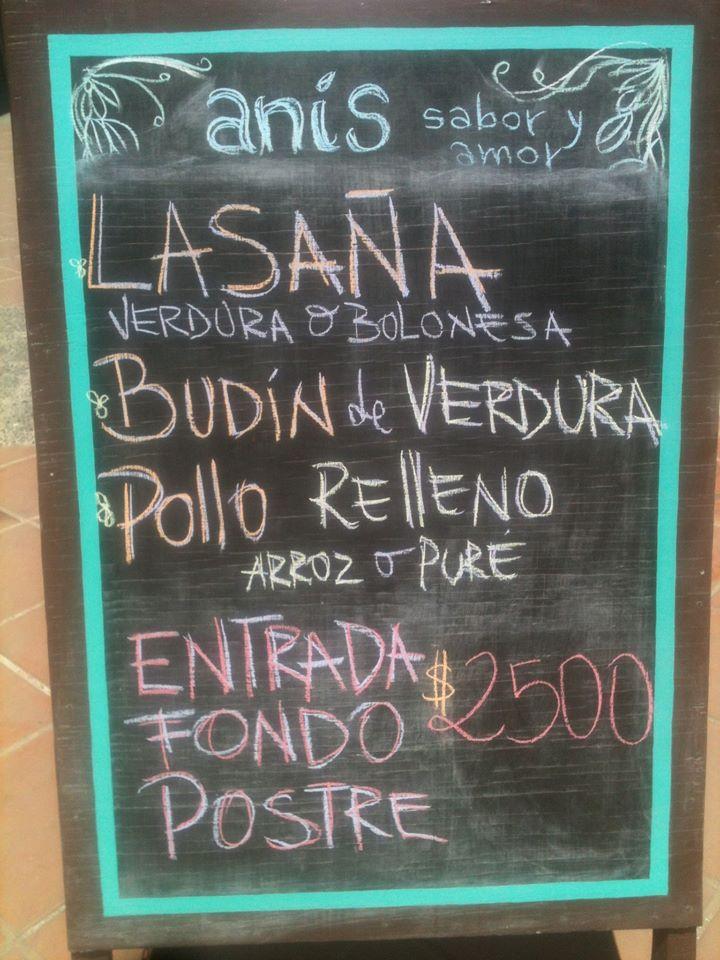 anís sabor y
amor
LASAÑA
VERDURA O BOLOÑESA
BUDÍN de VERDURA
Pollo RELLENO
ARROZ O PURÉ
ENTRADA $2500
FONDO
POSTRE